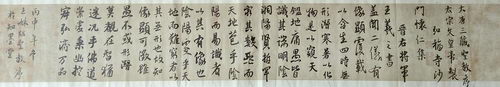 大唐三藏聖教序
太宗文皇帝製
弘福寺沙
門懷仁集
晉右將軍
王羲之書
蓋聞二儀有
像顯覆載
以含生四時無
形潛寒暑以化
物是以窺天
鑑地庸愚皆
識其端明陰
洞陽賢哲罕
窮其數然而
天地苞乎陰
陽而易識者
以其有像也
陰陽處乎天
地而難窮者以
其無形也故知
像顯可徵雖
愚不惑形潛
莫覩在智猶
迷況乎佛道
崇虛乘幽控
寂弘濟萬品